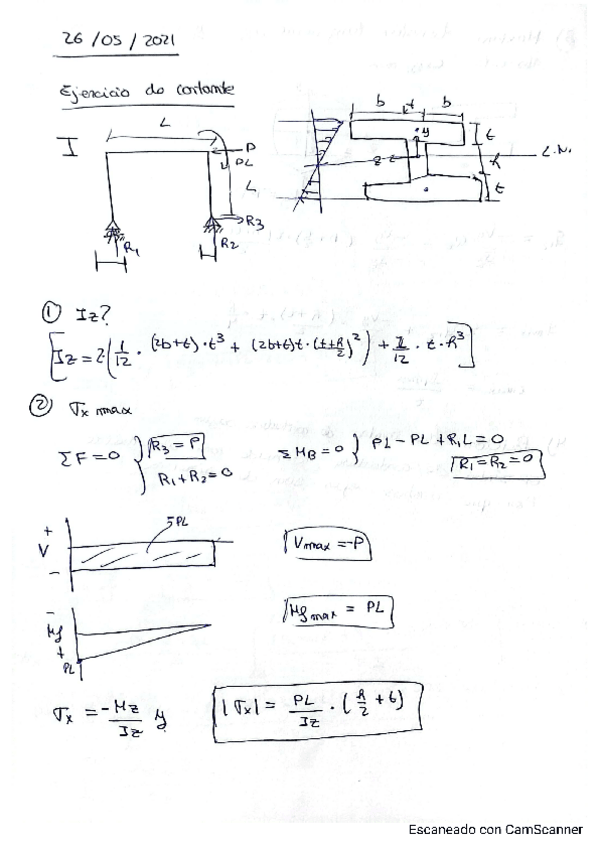 26/05/2021
Ejercicio de cortante
L
I
P
PL
L
R3
R1
R2
b t b
y
t
L.N.
h
t
① Iz?
[Iz = 2(1/12 · (2b+t)·t³ + (2b+t)t·(t+h/2)²) + 1/12 · t·h³]
② σx max
ΣF=0 } R3 = P
R1+R2=0
ΣMB=0 } PL-PL+R1L=0
R1=R2=0
+
V
-
-PL
Vmax = -P
-
Mf
+
PL
Mf max = PL
σx = -Mz/Iz y
|σx| = PL/Iz · (h/2 + t)
Escaneado con CamScanner